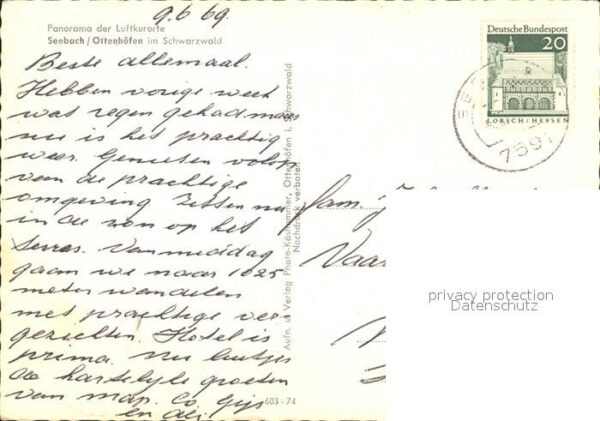 9.6 69
Panorama der Luftkurorte
Seebach/Ottenhöfen im Schwarzwald
Beste allemaal.
Hebben vorige week
wat regen gehad maar
nu is het prachtig
weer. Genieten volop
van de prachtige
omgeving Zitten nu
in de zon op het
terras. Vanmiddag
gaan we naar 1025
meter wandelen
met prachtige ver
gezichten. Hotel is
prima. Nu luitjes
de hartelijke groeten
van map. Co Gijs
en Ali
Aufn. u. Verlag Photo-Kästhammer, Ottenhöfen i. Schwarzwald
Nachdruck verboten
603 - 74
Deutsche Bundespost
20
LORSCH/HESSEN
SEE
7591
fam.
Vaar
privacy protection
Datenschutz